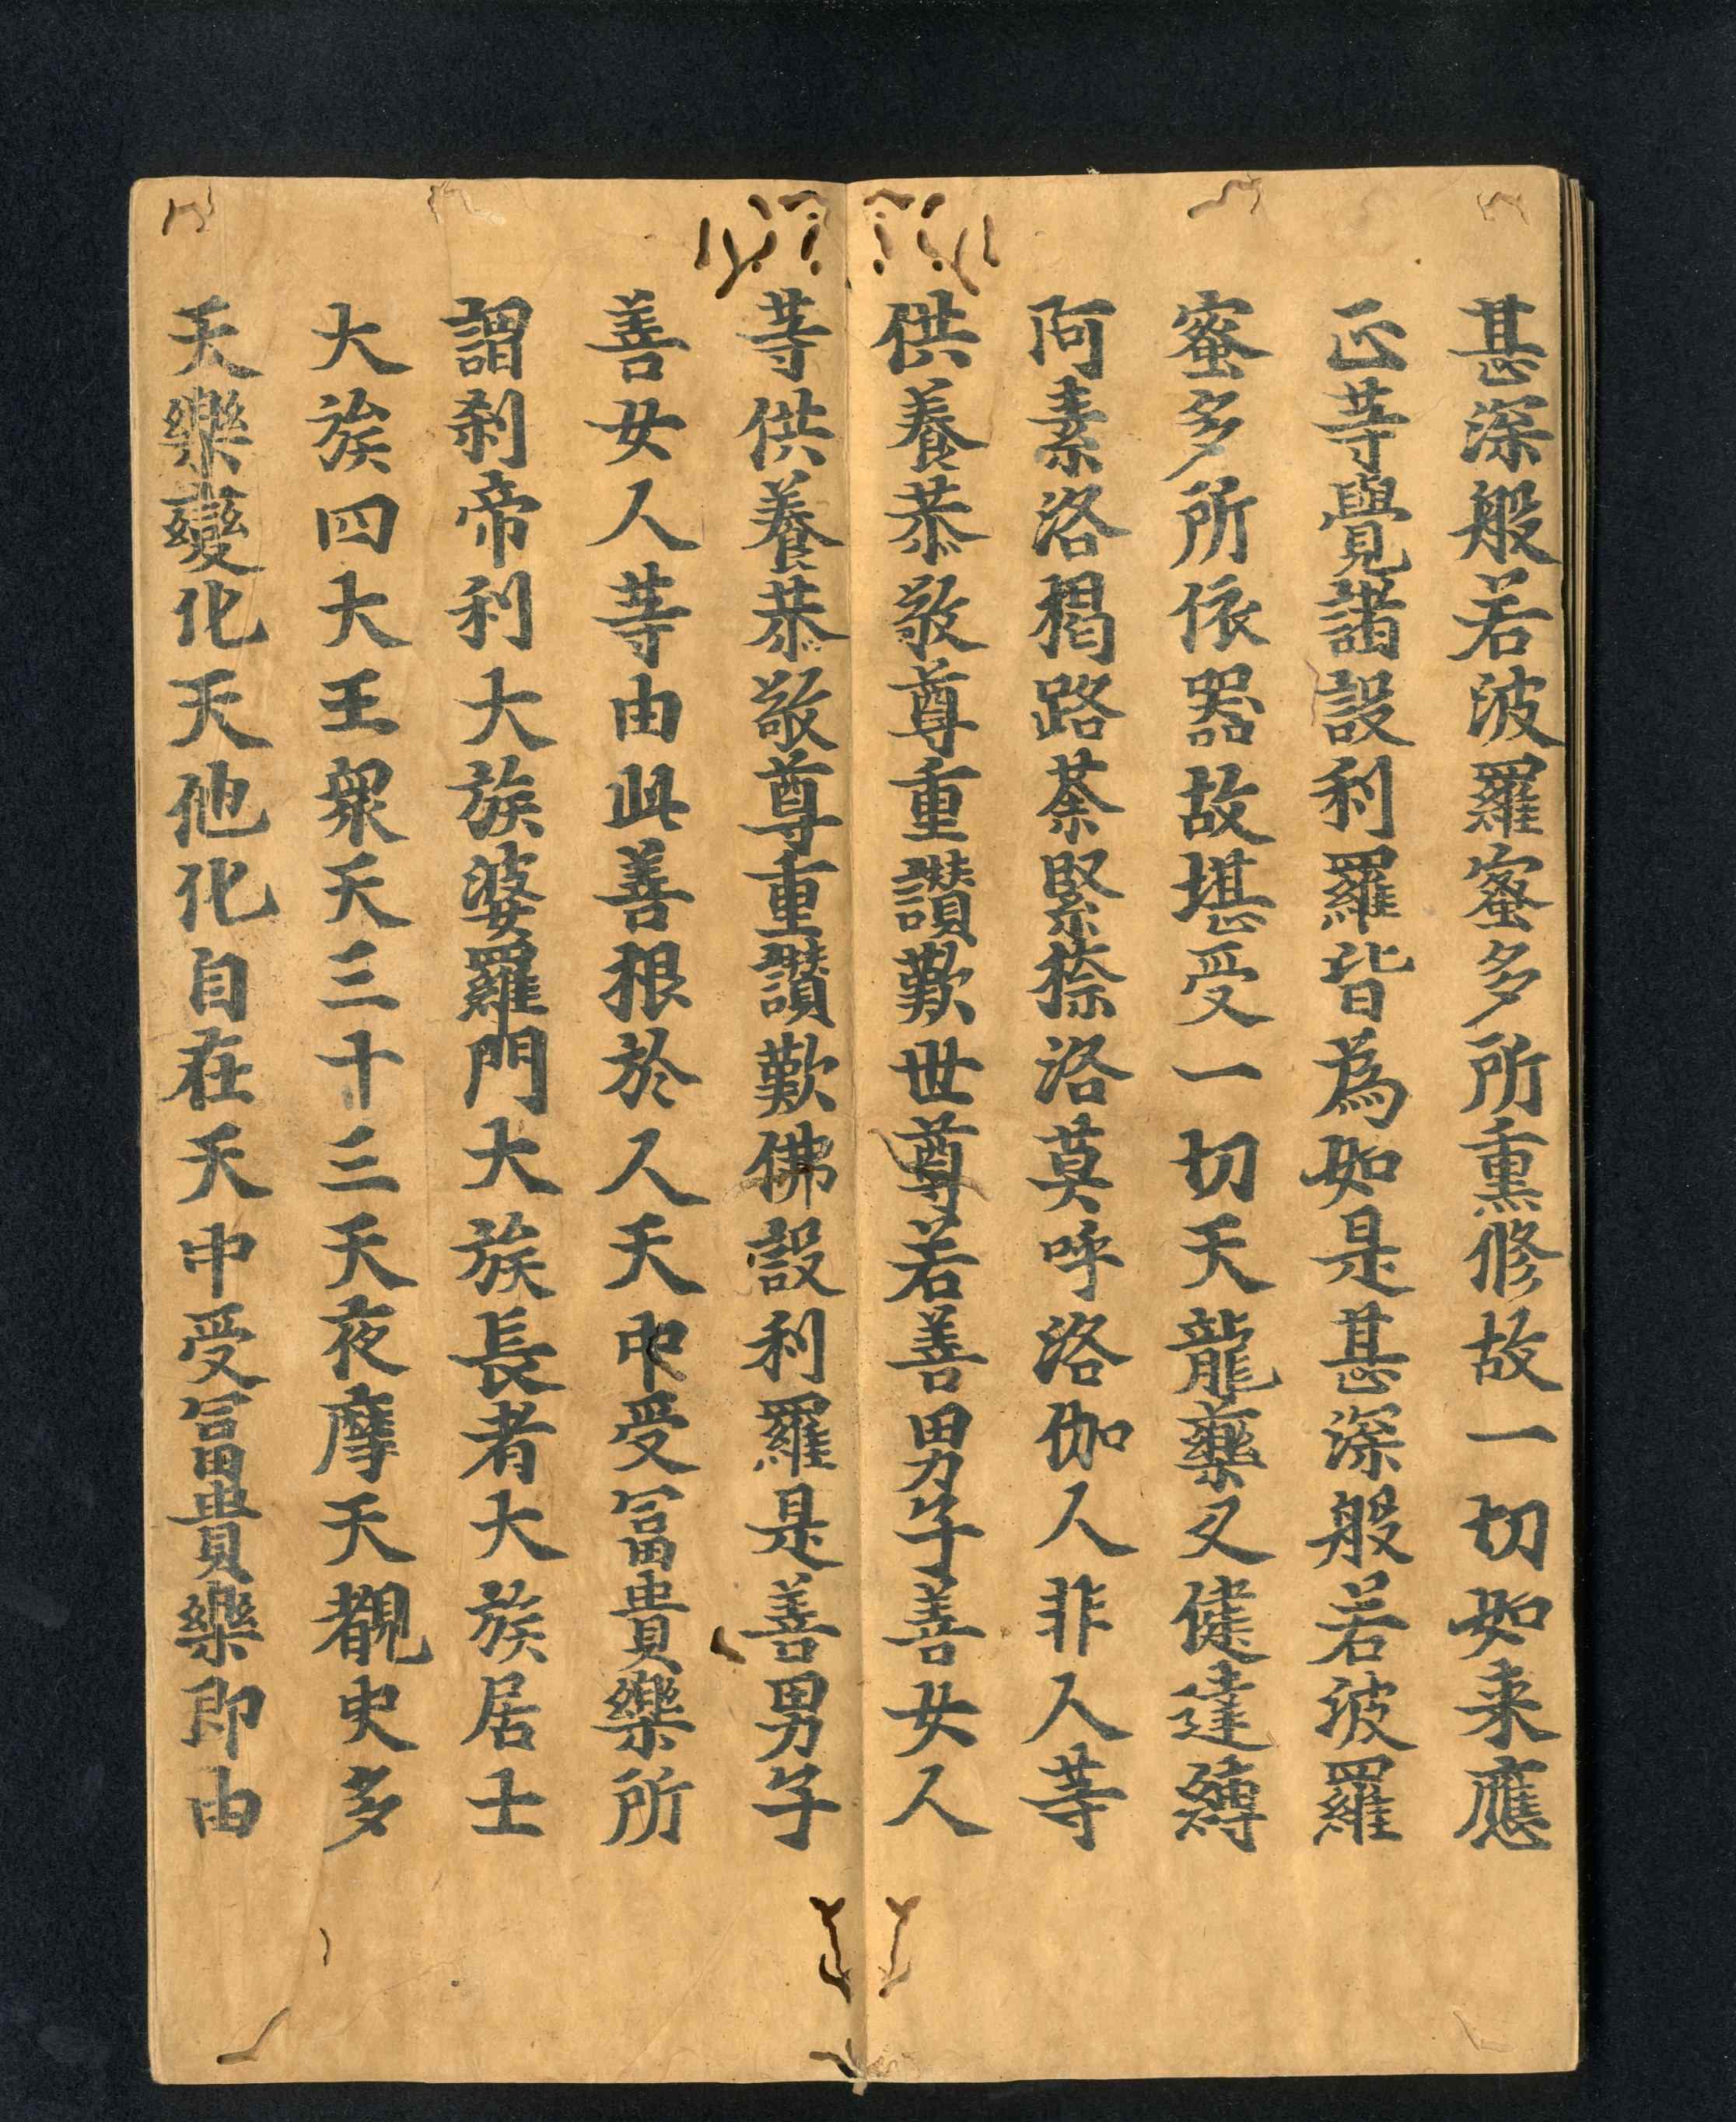 甚深般若波羅蜜多所熏修故一切如来應
正等覺諸設利羅皆為如是甚深般若波羅
蜜多所依器故堪受一切天龍藥叉健達縛
阿素洛揭路荼緊捺洛莫呼洛伽人非人等
供養恭敬尊重讃歎世尊若善男子善女人
等供養恭敬尊重讃歎佛設利羅是善男子
善女人等由此善根於人天中受冨貴樂所
謂刹帝利大族婆羅門大族長者大族居士
大族四大王衆天三十三天夜摩天覩史多
天樂變化天他化自在天中受冨貴樂即由